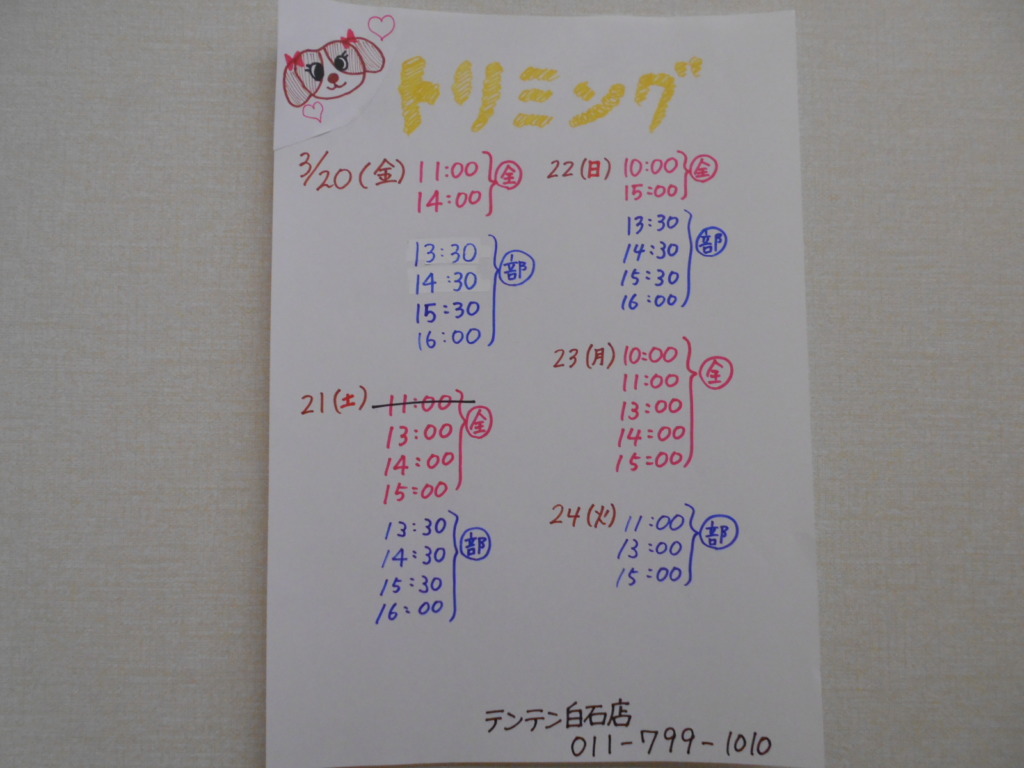 トリミング
3/20(金) 11:00 全
14:00
13:30
14:30 部
15:30
16:00
21(土) 11:00
13:00 全
14:00
15:00
13:30
14:30 部
15:30
16:00
22(日) 10:00 全
15:00
13:30
14:30 部
15:30
16:00
23(月) 10:00
11:00 全
13:00
14:00
15:00
24(火) 11:00
13:00 部
15:00
テンテン白石店
011-799-1010